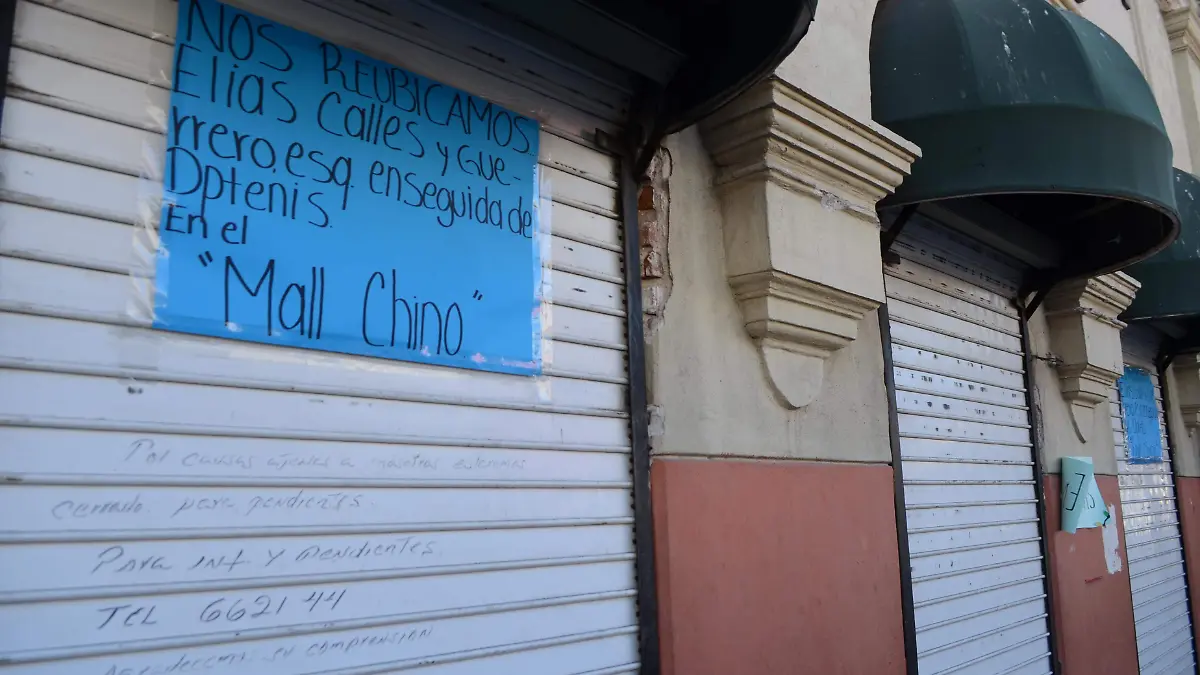 NOS REUBICAMOS
Elias Calles y Gue-
rrero.esq. enseguida de
Dptenis.
En el
"Mall Chino"
Por causas ajenas a nosotros estaremos
cerrado para pendientes
Para inf y pendientes
TEL 6621 44
su comprensión